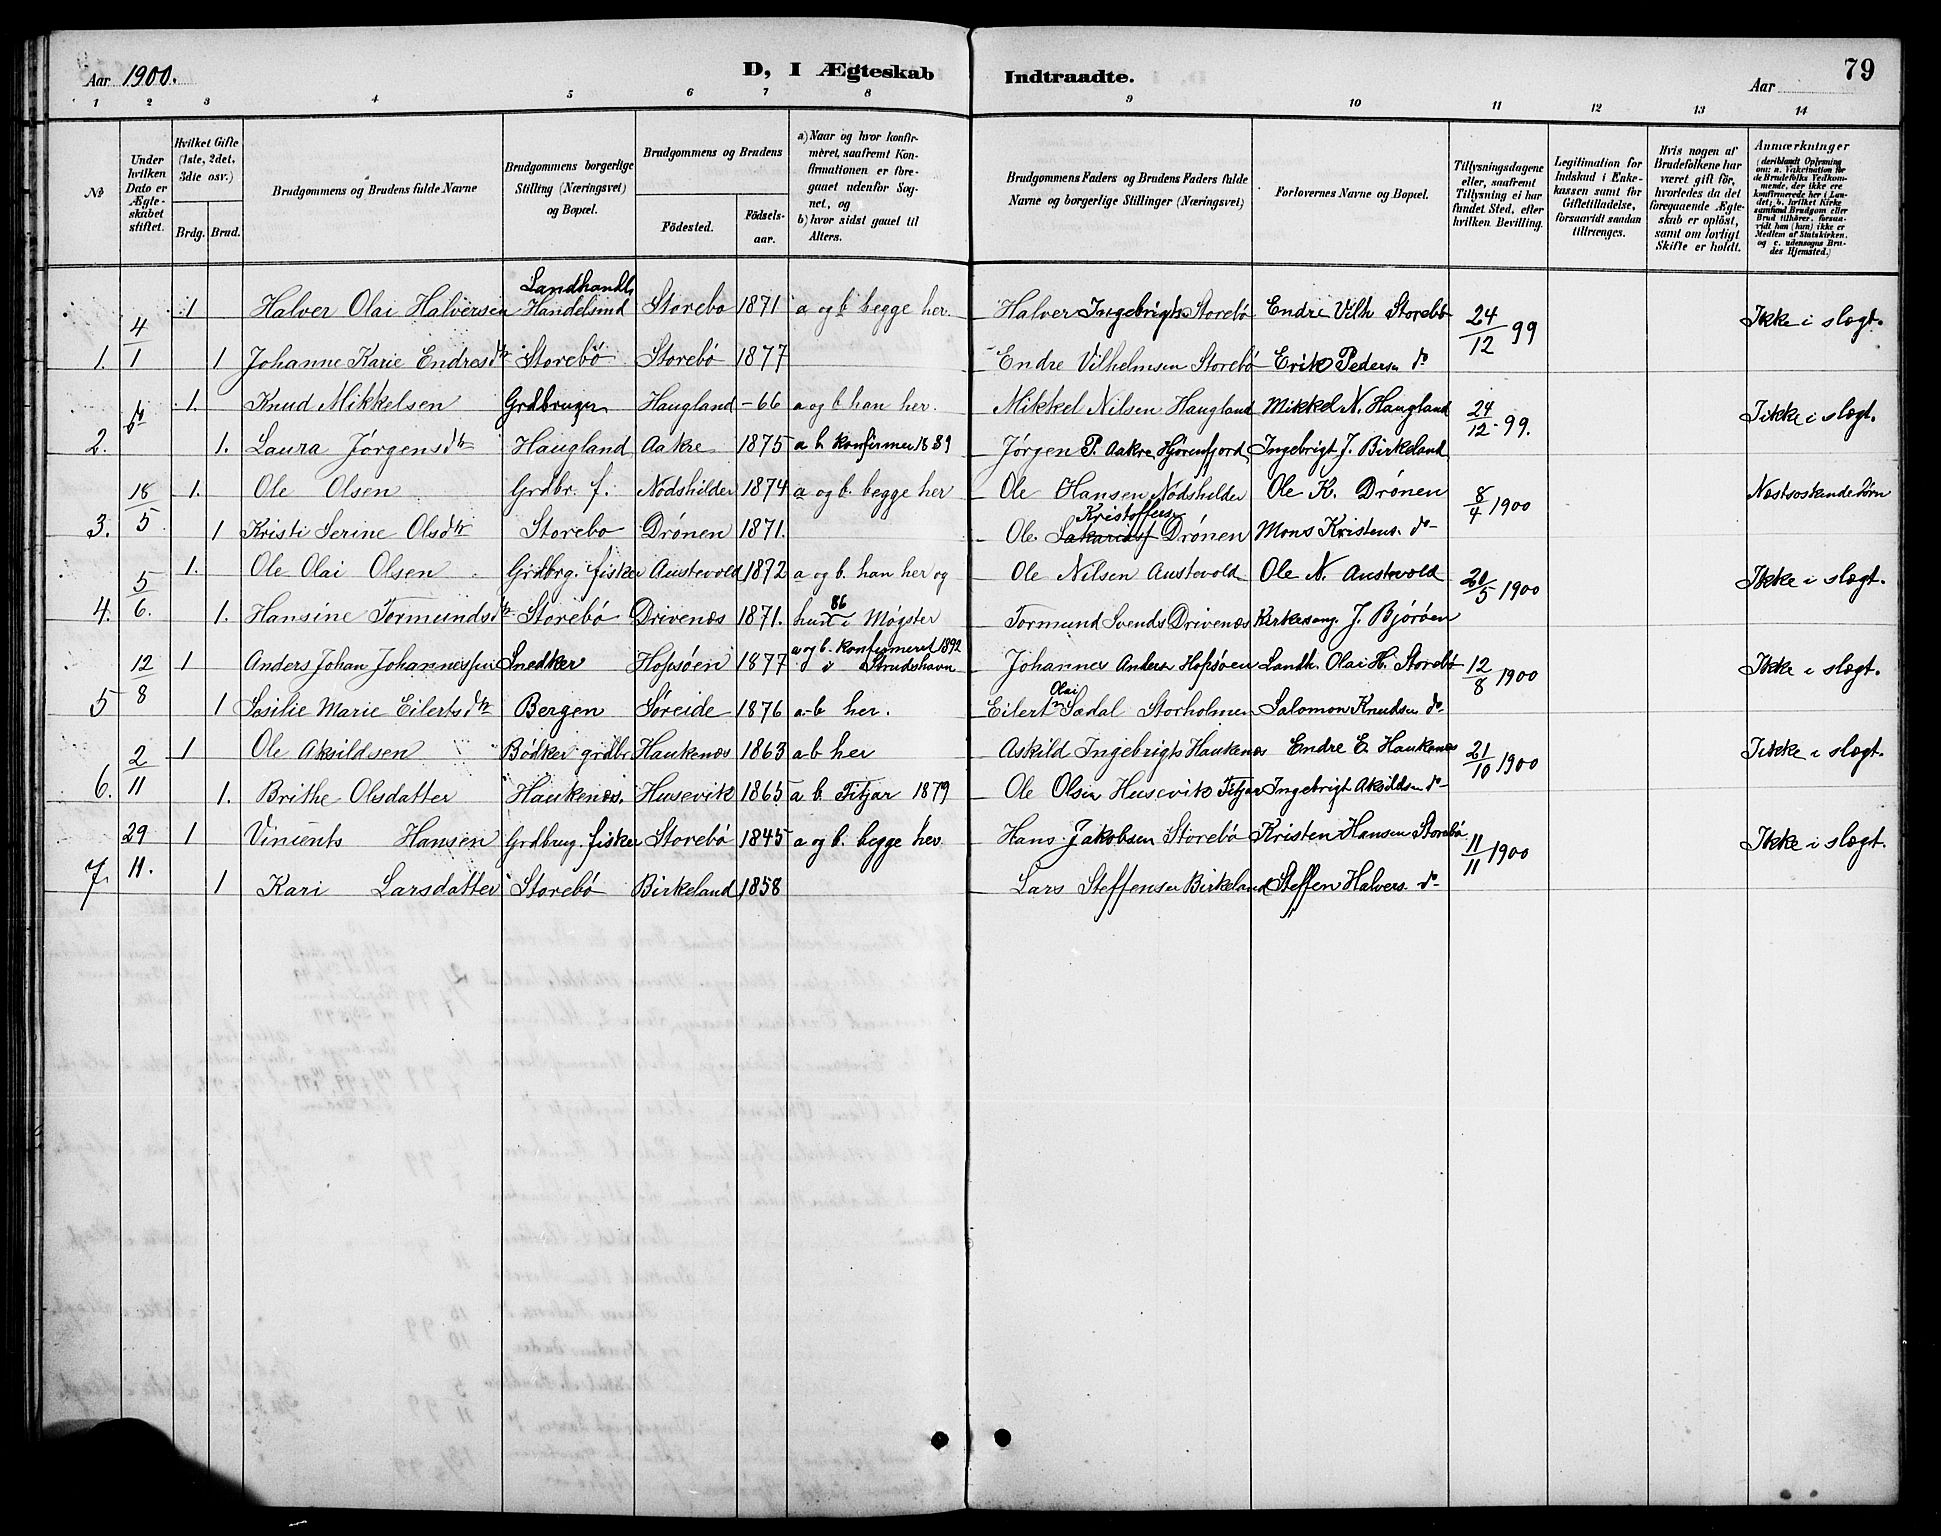 Aar 1900. D, I Ægteskab Indtraadte. Aar 79
1 2 3 4 5 6 7 8 9 10 11 12 13 14
№
Under hvilken Dato er Ægteskabet stiftet.
Hvilket Gifte (1ste, 2det, 3die osv.)
Brdg. Brud.
Brudgommens og Brudens fulde Navne
Brudgommens borgerlige Stilling (Næringsvei) og Bopæl.
Brudgommens og Brudens
Födested. Födsels-aar.
a) Naar og hvor konfirmeret, saafremt Konfirmationen er foregaaet udenfor Sognet, og b) hvor sidst gaaet til Alters.
Brudgommens Faders og Brudens Faders fulde Navne og borgerlige Stillinger (Næringsvei)
Forlovernes Navne og Bopæl.
Tillysningsdagene eller, saafremt Tillysning ei har fundet Sted, efter hvilken Bevilling.
Legitimation for Indskud i Enkekassen samt for Giftetilladelse, forsaavidt saadan tiltrænges.
Hvis nogen af Brudefolkene har været gift för, hvorledes da det foregaaende Ægteskab er oplöst, samt om lovligt Skifte er holdt.
Anmærkninger (deriblandt Oplysning om: a. Vakcination for de Brudefolks Vedkommende, der ikke ere konfirmerede her i Landet; b. hvilket Kirkesamfund Brudgom eller Brud tilhörer, forsaavidt han (hun) ikke er Medlem af Statskirken, og c. udensogns Brudes Hjemsted.)
4/1 1 Halver Olai Halversen Landhandl. Handelsmd Storebo 1871 a og b begge her. Halver Ingebrigts. Storebö Endre Vilh Storebö 24/12 99 Ikke i slægt.
1. 1 Johanne Karie Endresdtr Storebö Storebö 1877 Endre Vilhelmsen Storebö Erik Peders do
1. Knud Mikkelsen Grdbruger Haugland -66 a og b han her. Mikkel Nilsen Haugland Mikkel N. Haugland 24/12 - 99. Ikke i slægt.
2. 1. Laura Jørgensdtr Haugland Aakre 1875 a b konfirmer 1889 Jörgen P. Aakre Ingebrigt J. Birkeland
18/5 1. Ole Olsen Grdbr. f. Nödshilder 1874 a og b. begge her Ole Hansen Nödshilder Ole K. Drönen 8/4 1900 Næstsöskendebörn
3. 1 Kristi Serine Olsdtr Storebo Drönen 1871. Ole Kristoffers Drönen Mons Kristens. do
5/6. 1. Ole Olai Olsen Grdbrg. fisker Austevold 1872 a og b. han her og Ole Nilsen Austevold Ole N. Austevold 1900 Ikke i slægt.
4. 1. Hansine Tormundsdtr Storebö Drivenæs 1871. hun 86 i Møgster Tormund Svends Drivenæs Kirkesang. J. Björöen
12/8 1 Anders Johan Johannessen Snedker Hopsøen 1877 a og b. konfirmeret 1892 i Strudshavn Johannes Anders Hopsøen Landh. Olai H. Storebö 12/8 1900 Ikke i slægt.
5 1 Sesilie Marie Eilertsdtr Bergen Søreide 1876 a-b her. Eilert Olai Sædal Storholmen Salomon Knudsen do
2/11 1 Ole Aksildsen Bødker grdbr Haukenæs 1863 a-b her Askild Ingebrigts Haukenæs Endre E. Haukenæs 21/10 1900 Ikke i slægt.
6. 1. Brithe Olsdatter Haukenæs. Husevik 1865 a b. Fitjar 1879 Ole Olsen Husevik Fitjar Ingebrigt Aksildsen do
29/11. 1 Vincents Hansen Grdbrug. fisker Storebö 1845 a og b. begge her Hans Jakobsen Storebö Kristen Hansen Storebö 11/11 1900 Ikke i slægt.
7. 1 Kari Larsdatter Storebö Birkeland 1858 Lars Steffensen Birkeland Steffen Halvers. do